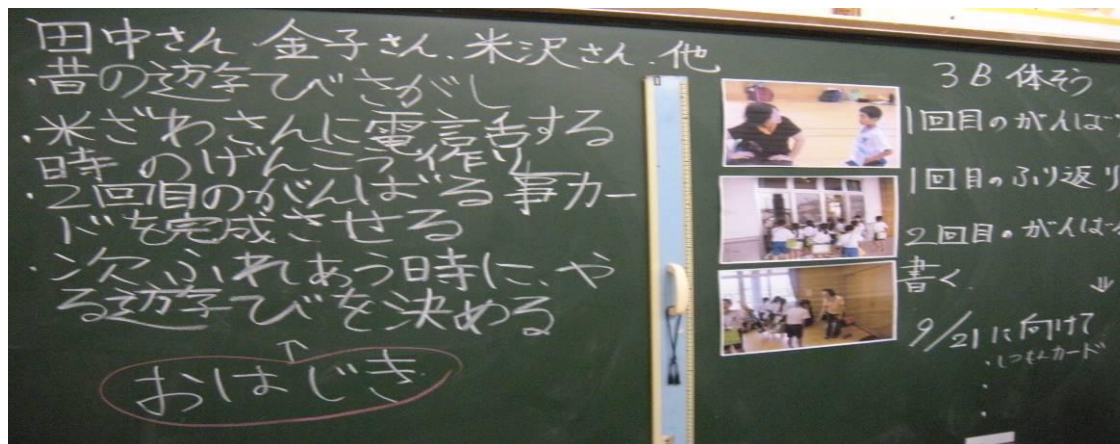 田中さん 金子さん、米沢さん、他
・昔の遊びさがし
・米ざわさんに電話する
時のげんこう作り
・2回目のがんばる事カー
ドを完成させる
・次ふれあう時に、や
る遊びを決める
↑
おはじき
3B体そう
1回目のがんば
1回目のふり返り
2回目のがんば
書く
↓
9/21に向けて
・しつもんカード
・
・